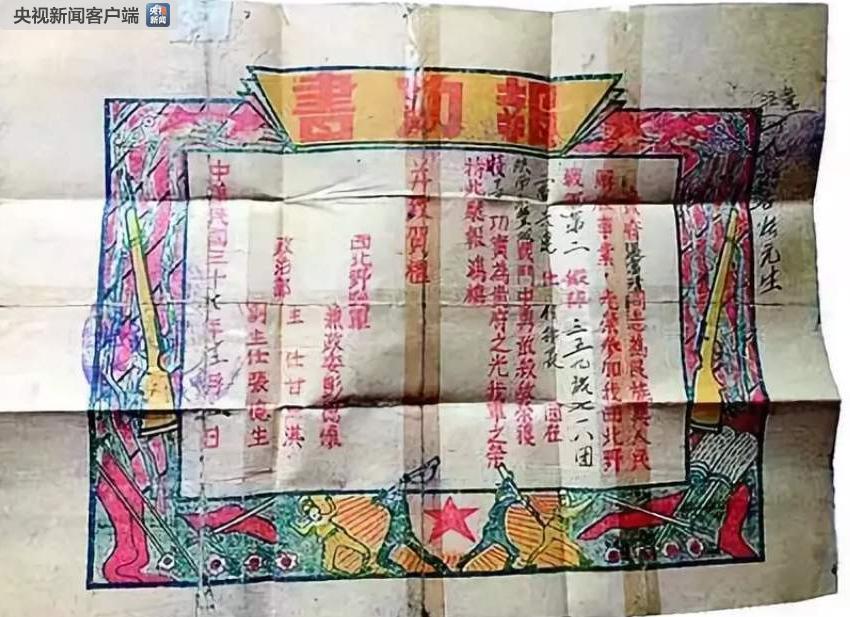 央视新闻客户端
央视新闻
報功書
貴府張富清同志為民族與人民
解放事業，光榮參加我西北野
戰軍第二縱隊三五九旅七一八團
任 因在
戰鬥中勇敢殺敵榮獲
功實為貴府之光我軍之榮
特此馳報鴻禧
并致賀禮
西北野戰軍
兼政委彭德懷
政治部
主任甘泗淇
副主任張德生
中華民國三十七年 月 日